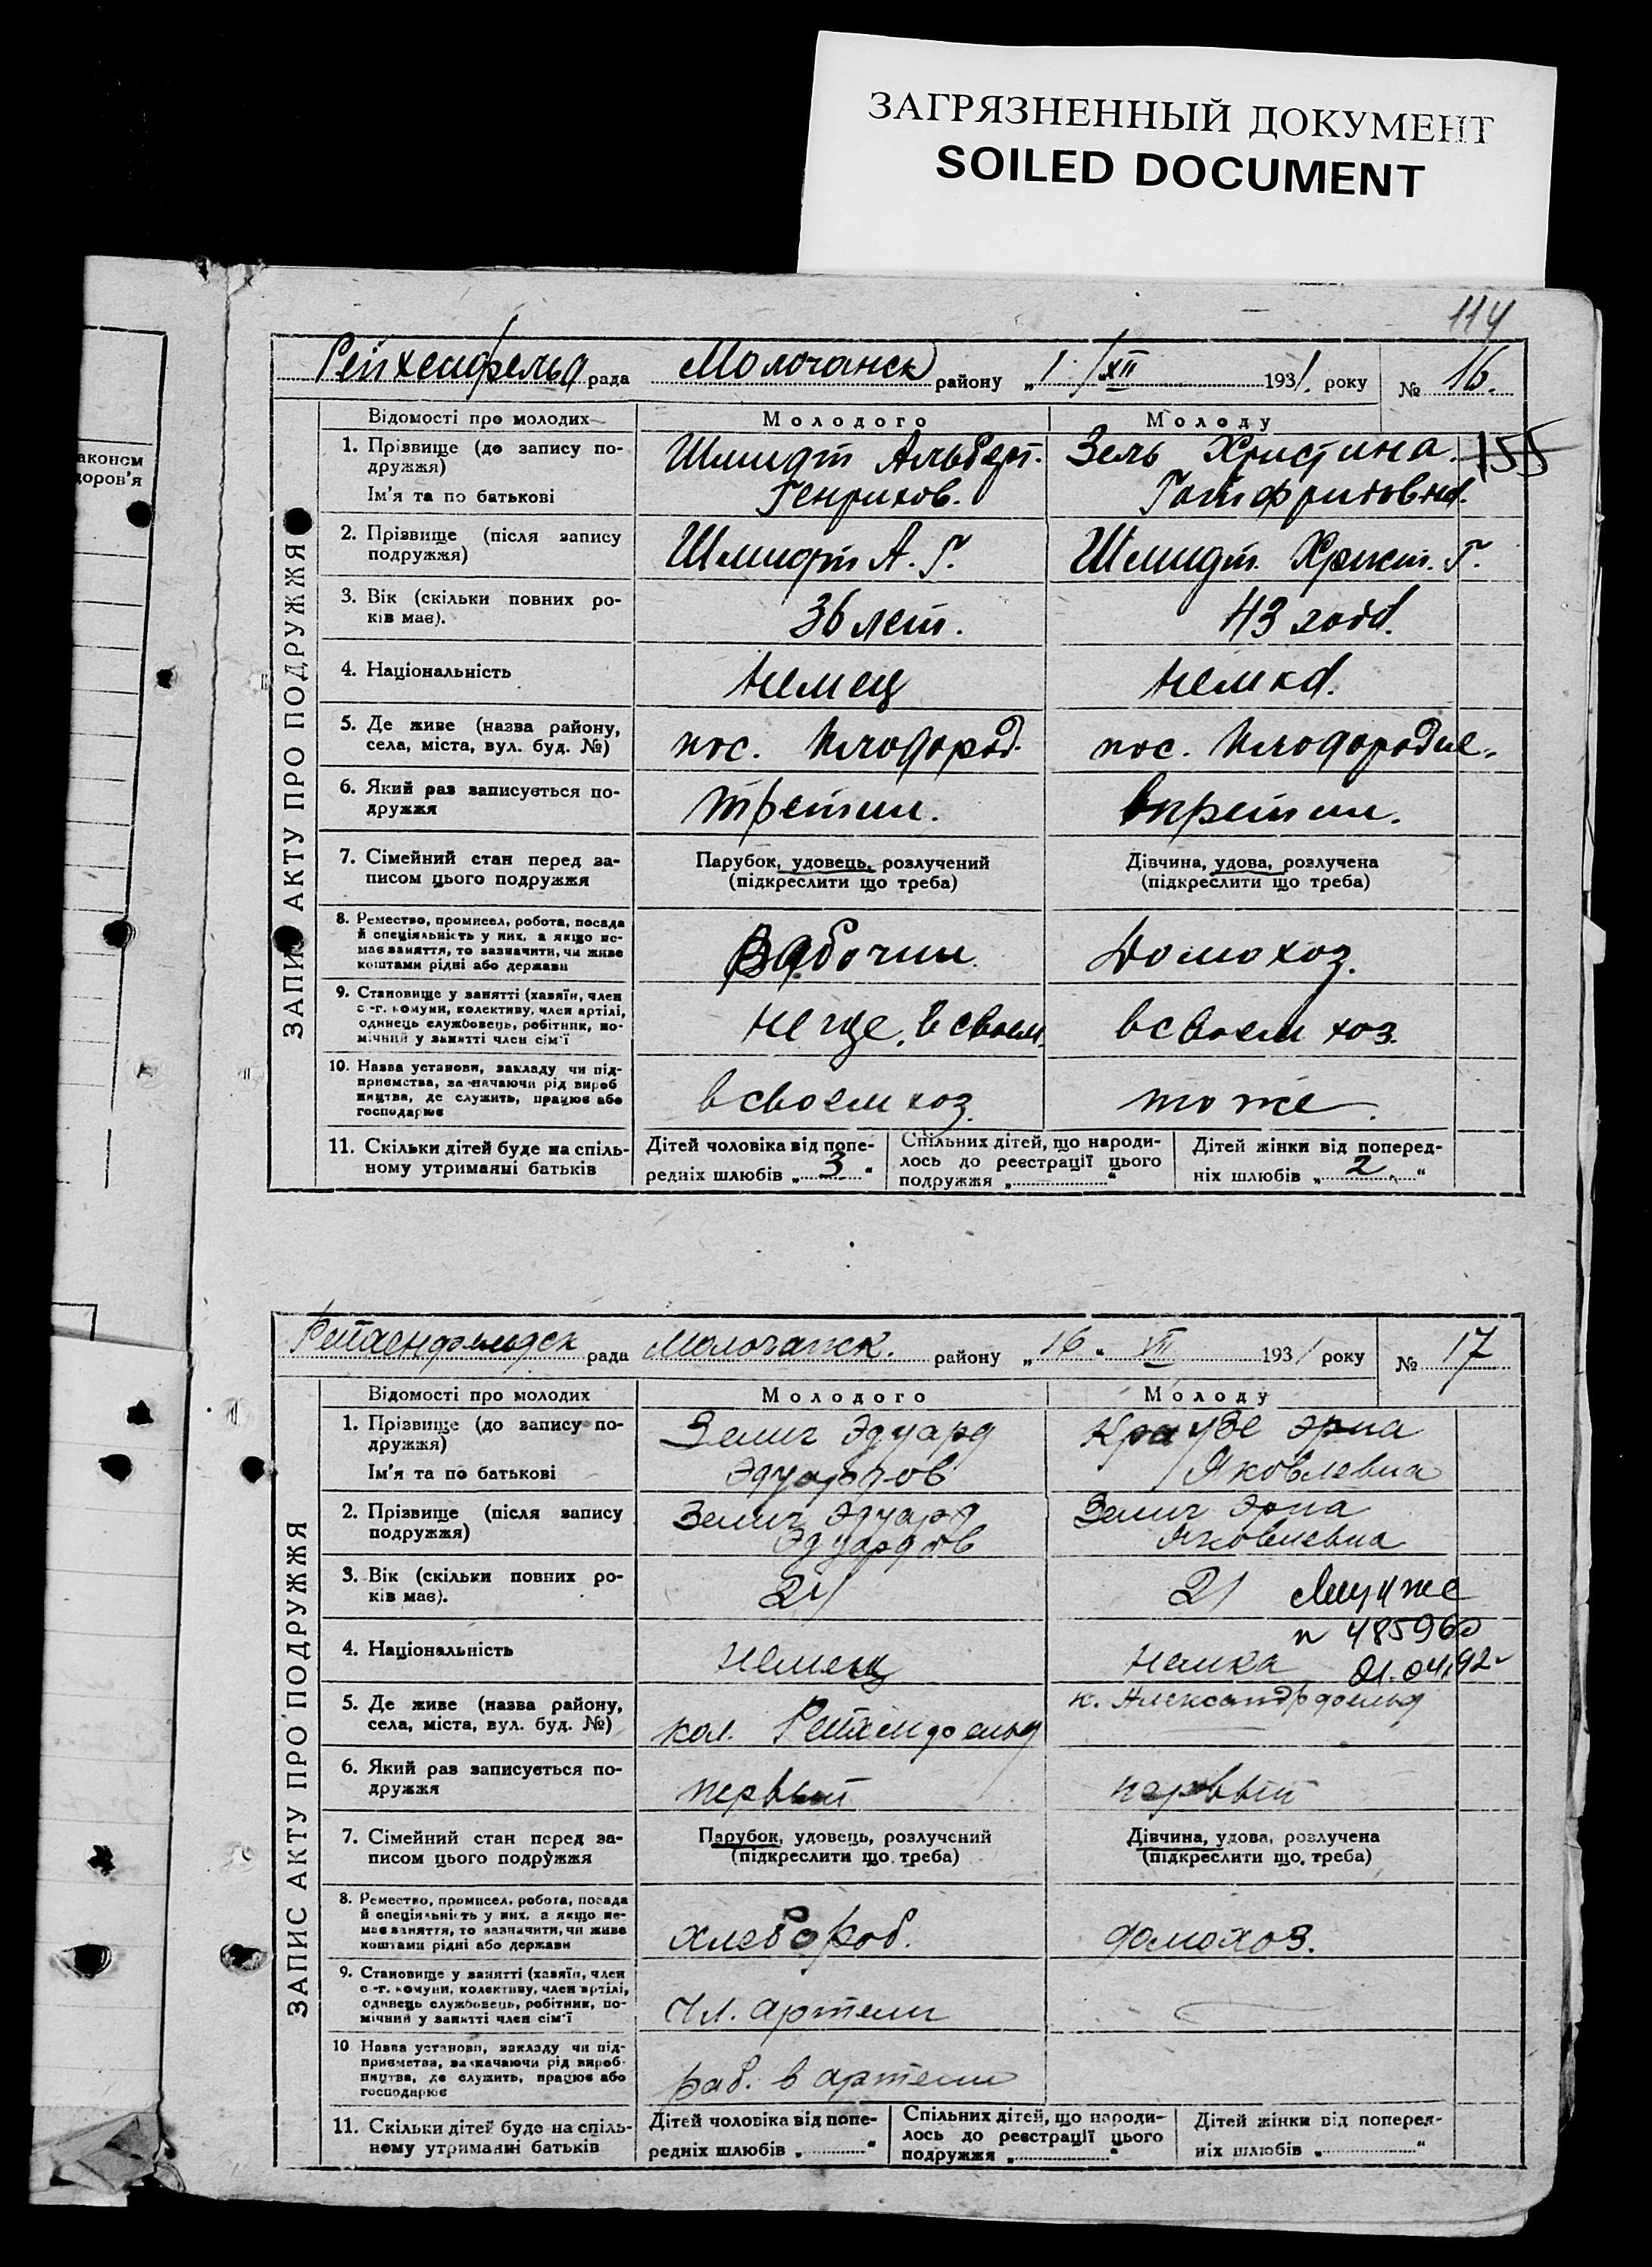 ЗАГРЯЗНЕННЫЙ ДОКУМЕНТ
SOILED DOCUMENT
114
аконом
доров'я
Рейхенфельд рада Молочанск району „1/XII 1931. року № 16.
ЗАПИС АКТУ ПРО ПОДРУЖЖЯ
Відомості про молодих
Молодого
Молоду
1. Прізвище (до запису по-
дружжя)
Ім'я та по батькові
Шмидт Альберт.
Генрихов.
Зель Христина.
Готфридовна.
155
2. Прізвище (після запису
подружжя)
Шмидт А. Г.
Шмидт Христ. Г.
3. Вік (скільки повних ро-
ків має).
36 лет.
43 года.
4. Національність
немец
немка.
5. Де живе (назва району,
села, міста, вул. буд. №)
пос. Плодород.
пос. Плодородие.
6. Який раз записується по-
дружжя
третий.
7. Сімейний стан перед за-
писом цього подружжя
Парубок, удовець, розлучений
(підкреслити що треба)
Дівчина, удова, розлучена
(підкреслити що треба)
8. Ремество, промисел, робота, посада
й спеціяльність у них, а якщо не-
має заняття, то зазначити, чи живе
коштами рідні або держави
Рабочий.
Домохоз.
9. Становище у занятті (хазяїн, член
с.-г. комуни, колективу, член артілі,
одинець службовець, робітник, по-
мічний у занятті член сім'ї
не где, в своем
в своем хоз.
10. Назва установи, закладу чи під-
приємства, зазначаючи рід вироб
ництва, де служить, працює або
господарює
в своем хоз.
то же.
11. Скільки дітей буде на спіль-
ному утриманні батьків
Дітей чоловіка від попе-
редніх шлюбів „ 3 “
Спільних дітей, що народи-
лось до реєстрації цього
подружжя „ “
Дітей жінки від поперед-
ніх шлюбів „ 2 “
рада Молочанск. району „16“ VII 1931 року № 17
ЗАПИС АКТУ ПРО ПОДРУЖЖЯ
Відомості про молодих
Молодого
Молоду
1. Прізвище (до запису по-
дружжя)
Ім'я та по батькові
Зелиг Эдуард
Эдуардов
Краузе Эрна
Яковлевна
2. Прізвище (після запису
подружжя)
Зелиг Эдуард
Эдуардов
Зелиг Эрна
Яковлевна
3. Вік (скільки повних ро-
ків має).
24
21
№ 485960
01.04.92
4. Національність
немец
немка
5. Де живе (назва району,
села, міста, вул. буд. №)
кол. Рейхенфельд
к. Александрфельд
6. Який раз записується по-
дружжя
первый
первый
7. Сімейний стан перед за-
писом цього подружжя
Парубок, удовець, розлучений
(підкреслити що треба)
Дівчина, удова, розлучена
(підкреслити що треба)
8. Ремество, промисел, робота, посада
й спеціяльність у них, а якщо не-
має заняття, то зазначити, чи живе
коштами рідні або держави
хлебороб.
домохоз.
9. Становище у занятті (хазяїн, член
с.-г. комуни, колективу, член артілі,
одинець службовець, робітник, по-
мічний у занятті член сім'ї
чл. артели
10 Назва установи, закладу чи під-
приємства, зазначаючи рід вироб-
ництва, де служить, працює або
господарює
раб. в артели
11. Скільки дітей буде на спіль-
ному утриманні батьків
Дітей чоловіка від попе-
редніх шлюбів „ “
Спільних дітей, що народи-
лось до реєстрації цього
подружжя „ “
Дітей жінки від поперед-
ніх шлюбів „ “